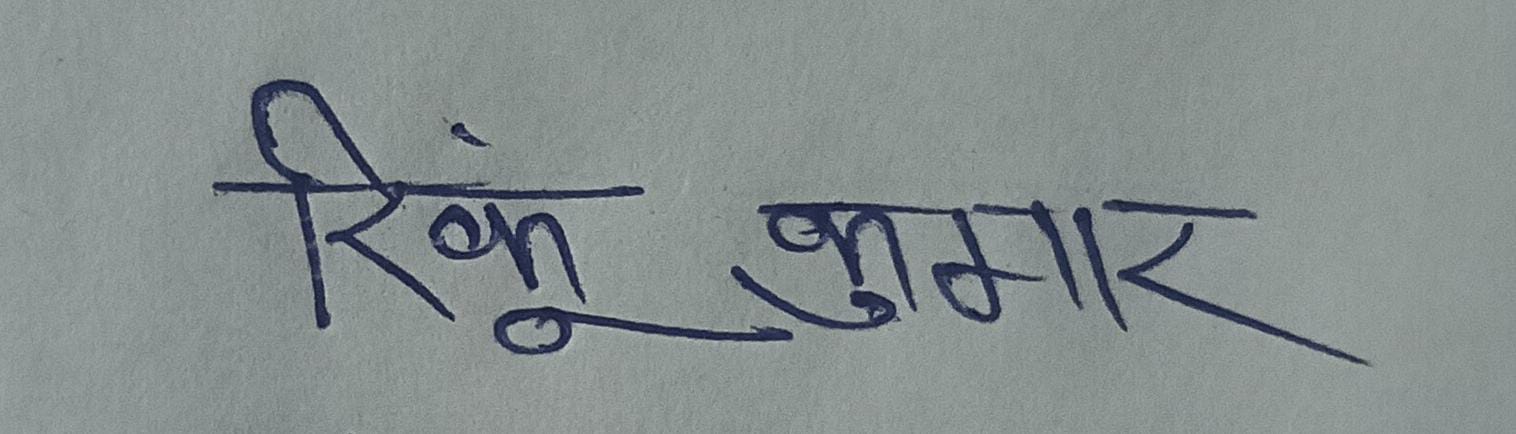 रिकूं कुमार